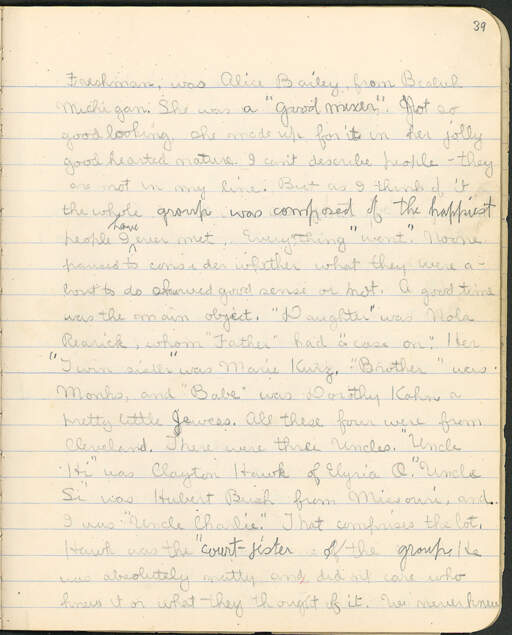 39
Freshman, was Alice Bailey, from
Michigan. She was a "good mixer". Not so
good looking, she made up for it in her jolly
good hearted nature. I can't describe people - they
are not in my line. But as I think of it
the whole group was composed of the happiest
people I have ever met. Everything "went". No one
paused to consider whether what they were a-
bout to do showed good sense or not. A good time
was the main object. "Daughter" was Nola
Rearick, whom "Father" had a "case on." Her
"Twin sister" was Marie Kurz. "Brother" was
Monks, and "Babe" was Dorothy Kohn a
pretty little Jewess. All these four were from
Cleveland. There were three Uncles. "Uncle
Hi" was Clayton Hawk of Elyria O. "Uncle
Si" was Hubert Bush from Missouri, and
I was "Uncle Charlie." That comprises the lot.
Hawk was the "court-jester of the group. He
was absolutely natty and did not care who
knew it or what they thought of it. We never knew